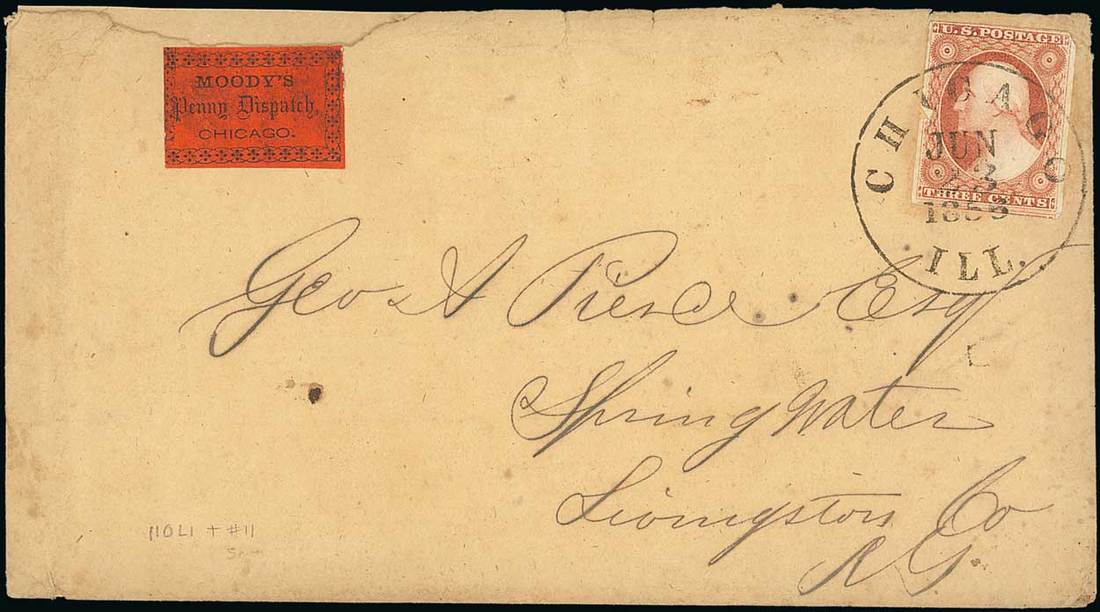 MOODY'S
Penny Dispatch,
CHICAGO.
U.S. POSTAGE
THREE CENTS
CHICAGO
JUN
23
1856
ILL.
Geo A Pierce Esq
Spring Water
Livingston Co
N Y
110L1 + #11